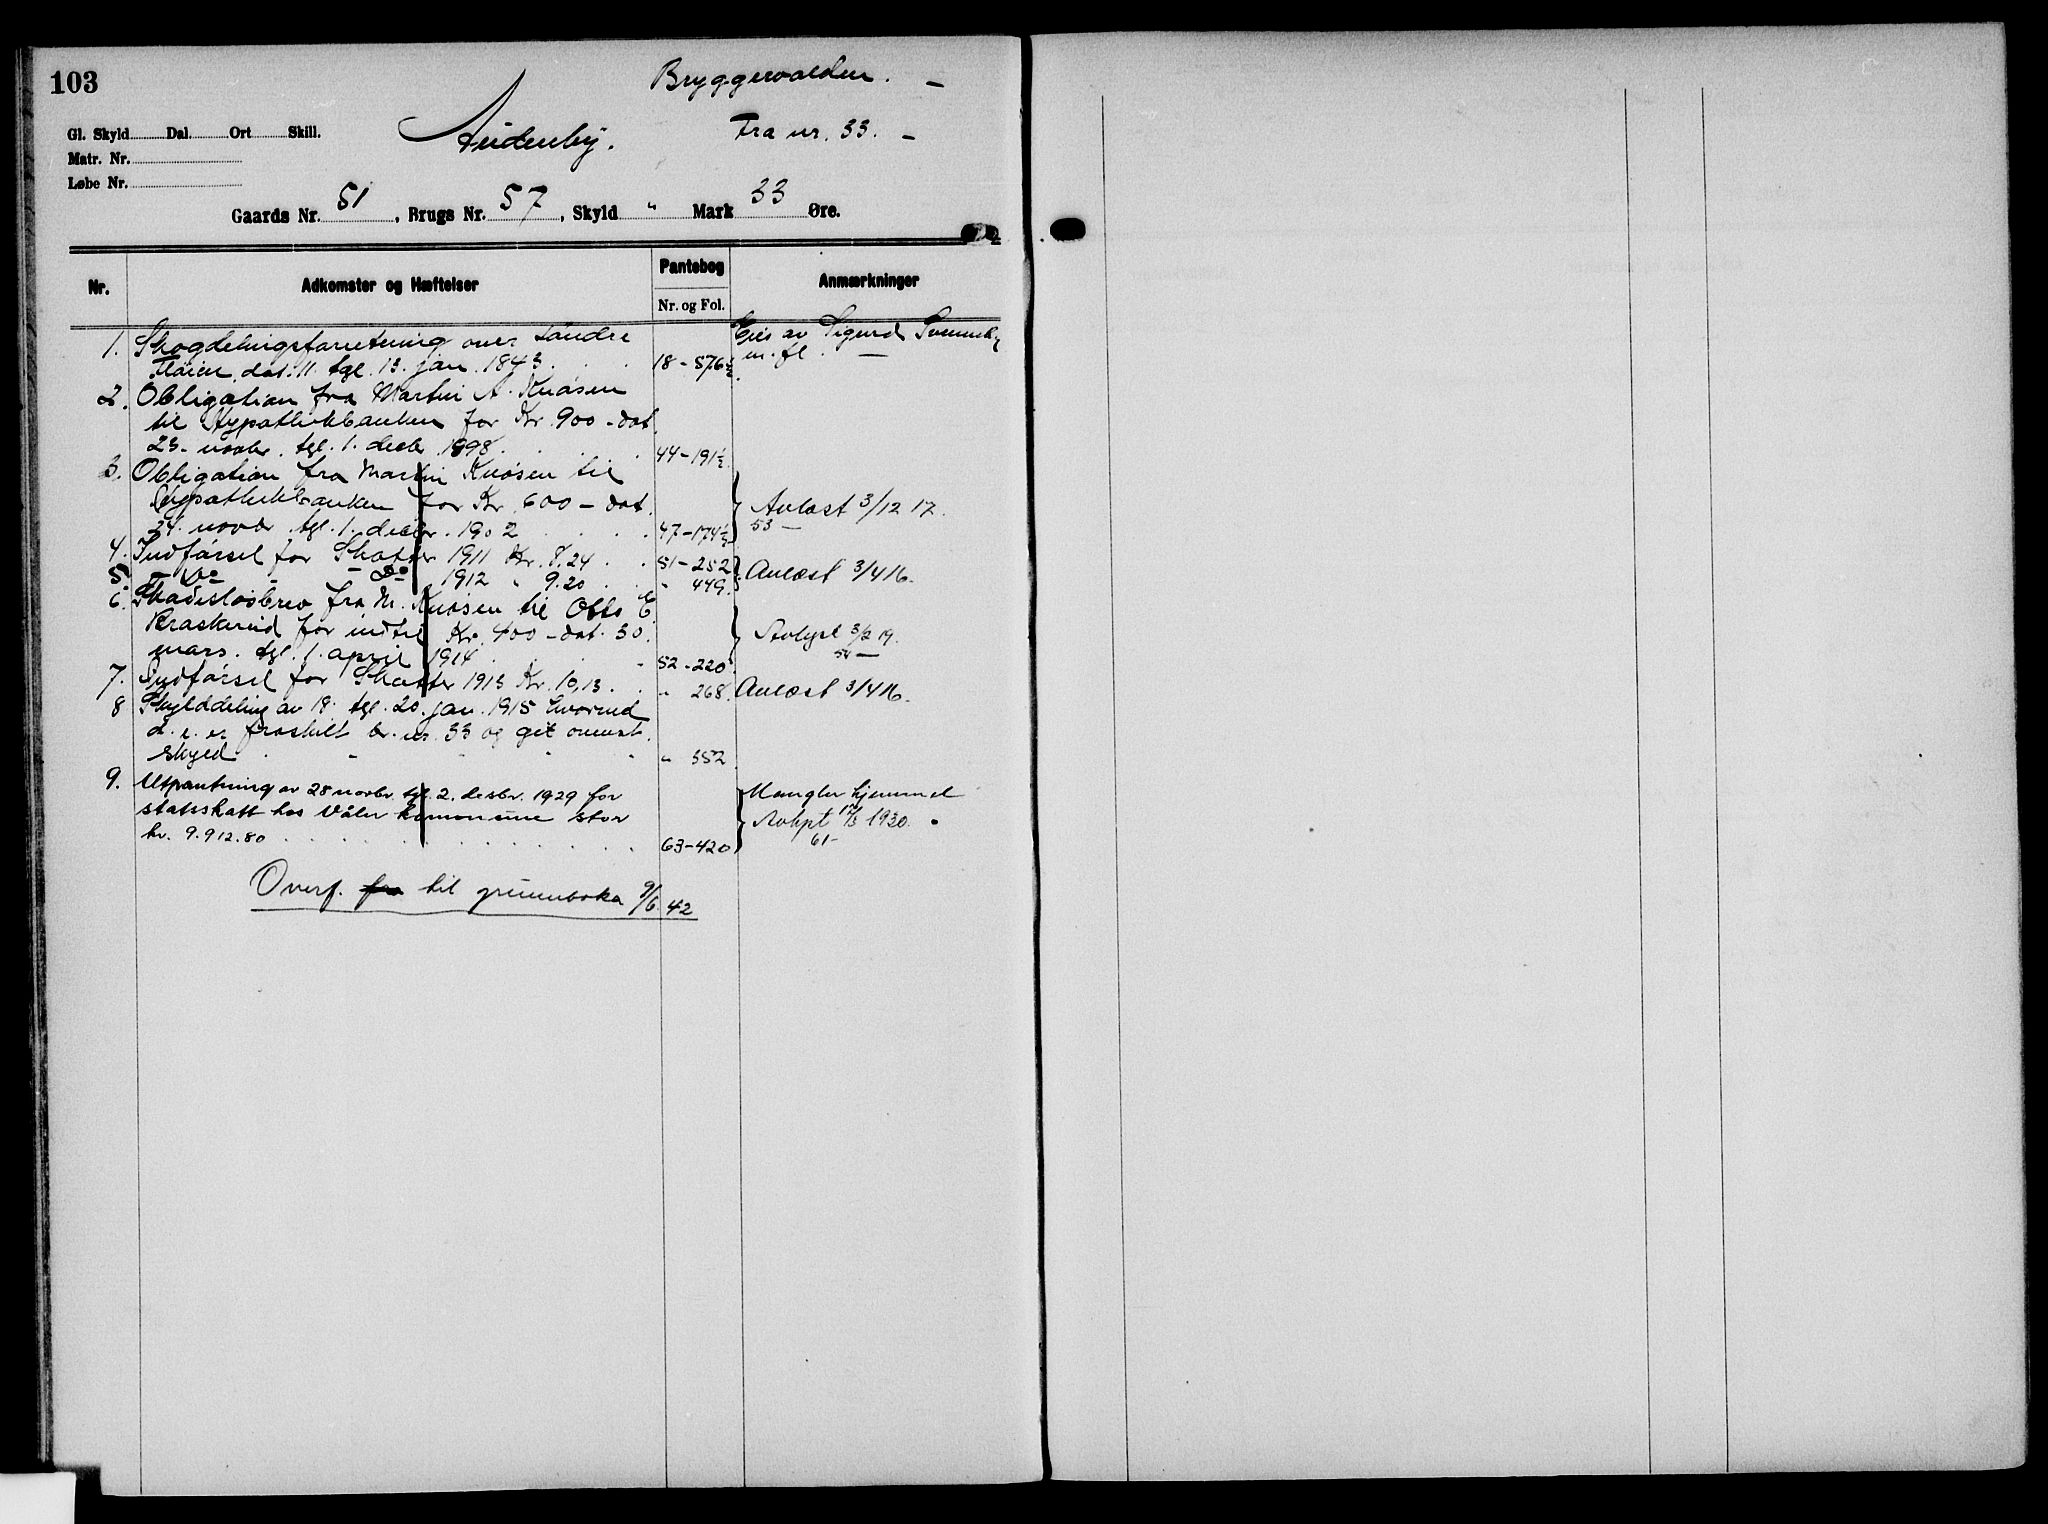 103
Bryggervolden. –
Gl. Skyld Dal Ort Skill.
Auderby.
Fra nr. 33. –
Matr. Nr.
Løbe Nr.
Gaards Nr. 51, Brugs Nr. 57, Skyld " Mark 33 Øre.
Nr. Adkomster og Hæftelser Pantebog Anmærkninger
Nr. og Fol.
1. Skogdelingsforretning over Søndre Eies av Sigurd
Fløien, dat. 11. tgl. 13. jan. 1843. 18 – 576 1/2 m. fl. –
2. Obligation fra Martin A. Knøsen
til Hypothekbanken for Kr. 900 – dat.
23. novbr. tgl. 1. decbr. 1898. 44 – 191 1/2
3. Obligation fra Martin Knøsen til
Hypothekbanken for Kr. 600 – dat. Avlæst 3/12 17.
24. novbr. tgl. 1. decbr. 1902 47 – 174 1/2 53 –
4. Indførsel for Skatter 1911 Kr. 8.24 51 – 252
5. – Do – Do 1912 " 9.20 " 449. Avlæst 3/4 16.
6. Skadesløsbrev fra M. Knøsen til Otto E.
Kraskerud for indtil Kr. 400 – dat. 30. Avlyst 3/2 19.
mars. tgl. 1. april 1914 52 – 220 54 –
7. Indførsel for Skatter 1913 Kr. 10,13. " 268. Avlæst 3/4 16.
8 Skylddeling av 18. tgl. 20. jan. 1915 hvorved
d. e. er fraskilt br. nr. 33 og git ovenst.
skyld " 552
9. Utpantning av 28 novbr. tgl. 2. desbr. 1929 for Mangler hjemmel
statsskatt hos Våler kommune stor Avhpt 17/3 1930.
kr. 9.912.80 63 – 420 61 –
Overf. fra til grunnboka 9/6 42